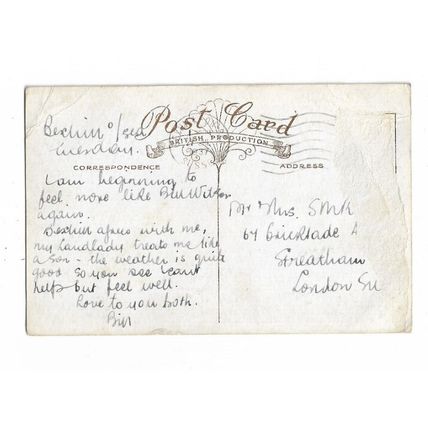 Post Card
BRITISH PRODUCTION
CORRESPONDENCE
ADDRESS
Bexhill o/sea
Tuesday.
I am beginning to
feel more like Bill
again.
Bexhill agrees with me,
my landlady treats me like
a son - the weather is quite
good so you see I cant
help but feel well.
Love to you both.
Bill
Mr & Mrs.
64
Streatham
London